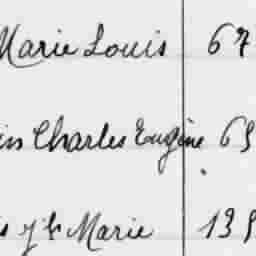 Marie Louis 67
Charles Eugène 69
Marie 139